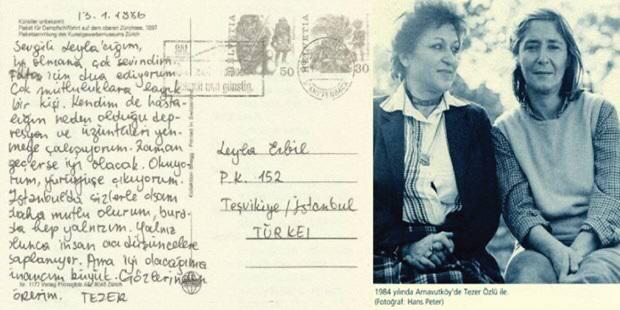 13.1.1986
Künstler unbekannt
Plakat für Dampfschiffahrt auf dem oberen Zürichsee, 1897
Plakatsammlung des Kunstgewerbemuseums Zürich
Sevgili Leylâ'cığım,
iyi olmana çok sevindim.
Fatoş'ün dua ediyorum.
Çok mutluluklara layık
bir kişi. Kendim de hasta-
lığın neden olduğu dep-
resyon ve üzüntüleri yen-
meye çalışıyorum. Zaman
geçerse iyi olacak. Okuyo-
rum, yürüyüşe çıkıyorum.
İstanbul'da sizlerle olsam
daha mutlu olurum, bura-
da hep yalnızım. Yalnız
olunca insan acı düşüncelere
saplanıyor. Ama iyi olacağıma
inancım büyük. Gözlerinden
öperim. TEZER
Printed in Switzerland
HELVETIA
50
HELVETIA
30
Leylâ Erbil
P.K. 152
Teşvikiye/İstanbul
TÜRKEI
1984 yılında Arnavutköy'de Tezer Özlü ile.
(Fotoğraf: Hans Peter)